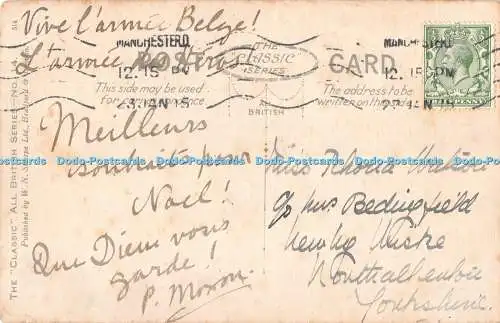 Vive l'armée Belge!
L'armée
MANCHESTER
12.15 PM
23 JAN 15
THE
CLASSIC
SERIES
ALL
BRITISH
CARD
MANCHESTER
12.15 PM
This side may be used
for correspondence
The address to be
written on this side
PENNY
THE "CLASSIC" ALL BRITISH SERIES—No.
Published by W. N.
Meilleurs
souhaits pour
Noël!
Que Dieu vous
garde!
P.
Miss Rhoda
c/o Mrs Bedingfield
Newby Wiske
Northallerton
Yorkshire
Dodo-Postcards Dodo-Postcards Dodo-Postcards Dodo-Postcards Dodo-Postcards